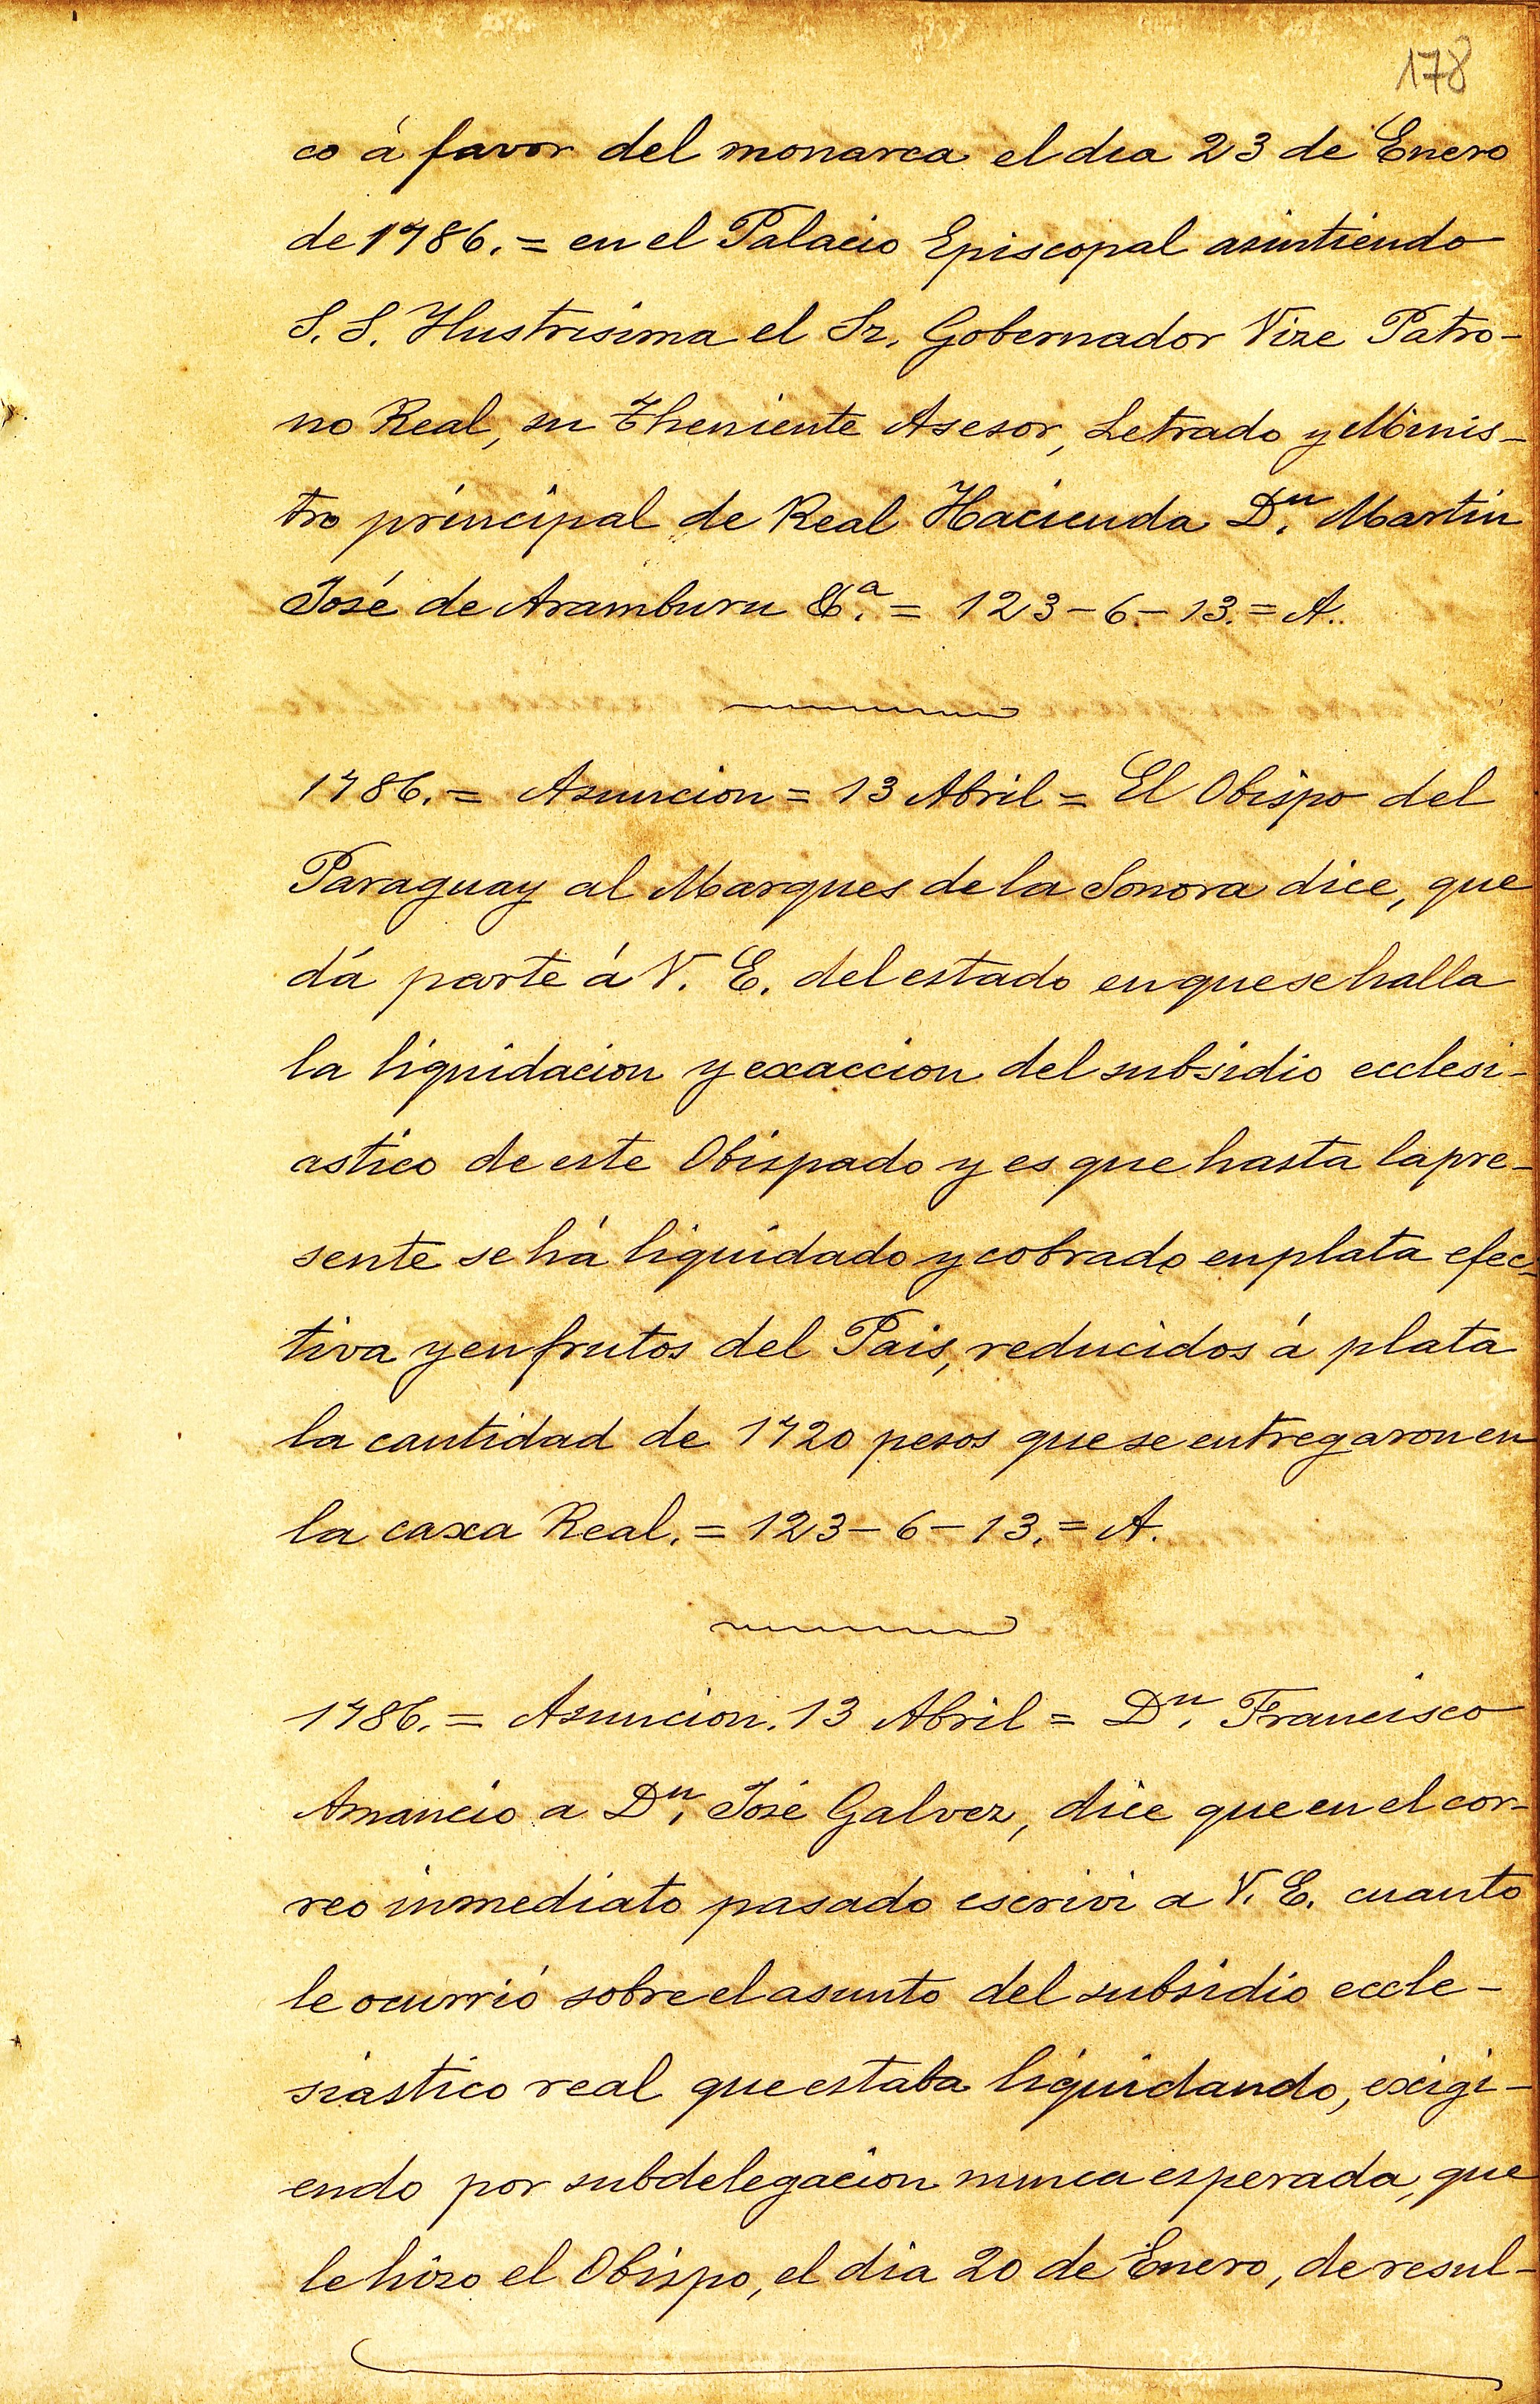 178
co á favor del monarca el dia 23 de Enero
de 1786. = en el Palacio Episcopal asistiendo
S. S. Ilustrisima el Sr. Gobernador Vize Patro-
no Real, su Theniente Asesor, Letrado y Minis-
tro principal de Real Hacienda Dn. Martin
José de Aramburu &a. = 123-6-13. = A..
1786. = Asuncion = 13 Abril = El Obispo del
Paraguay al Marques de la Sonora dice, que
dá parte á V. E. del estado en que se halla
la liquidacion y exaccion del subsidio ecclesi-
astico de este Obispado y es que hasta la pre-
sente se há liquidado y cobrado en plata efec-
tiva y en frutos del Pais, reducidos á plata
la cantidad de 1720 pesos que se entregaron en
la caxa Real. = 123-6-13. = A.
1786. = Asuncion. 13 Abril = Dn. Francisco
Amancio a Dn. José Galvez, dice que en el cor-
reo inmediato pasado escrivi a V. E. cuanto
le ocurrió sobre el asunto del subsidio eccle-
siastico real que estaba liquidando, exigi-
endo por subdelegacion nunca esperada, que
le hizo el Obispo, el dia 20 de Enero, de resul-